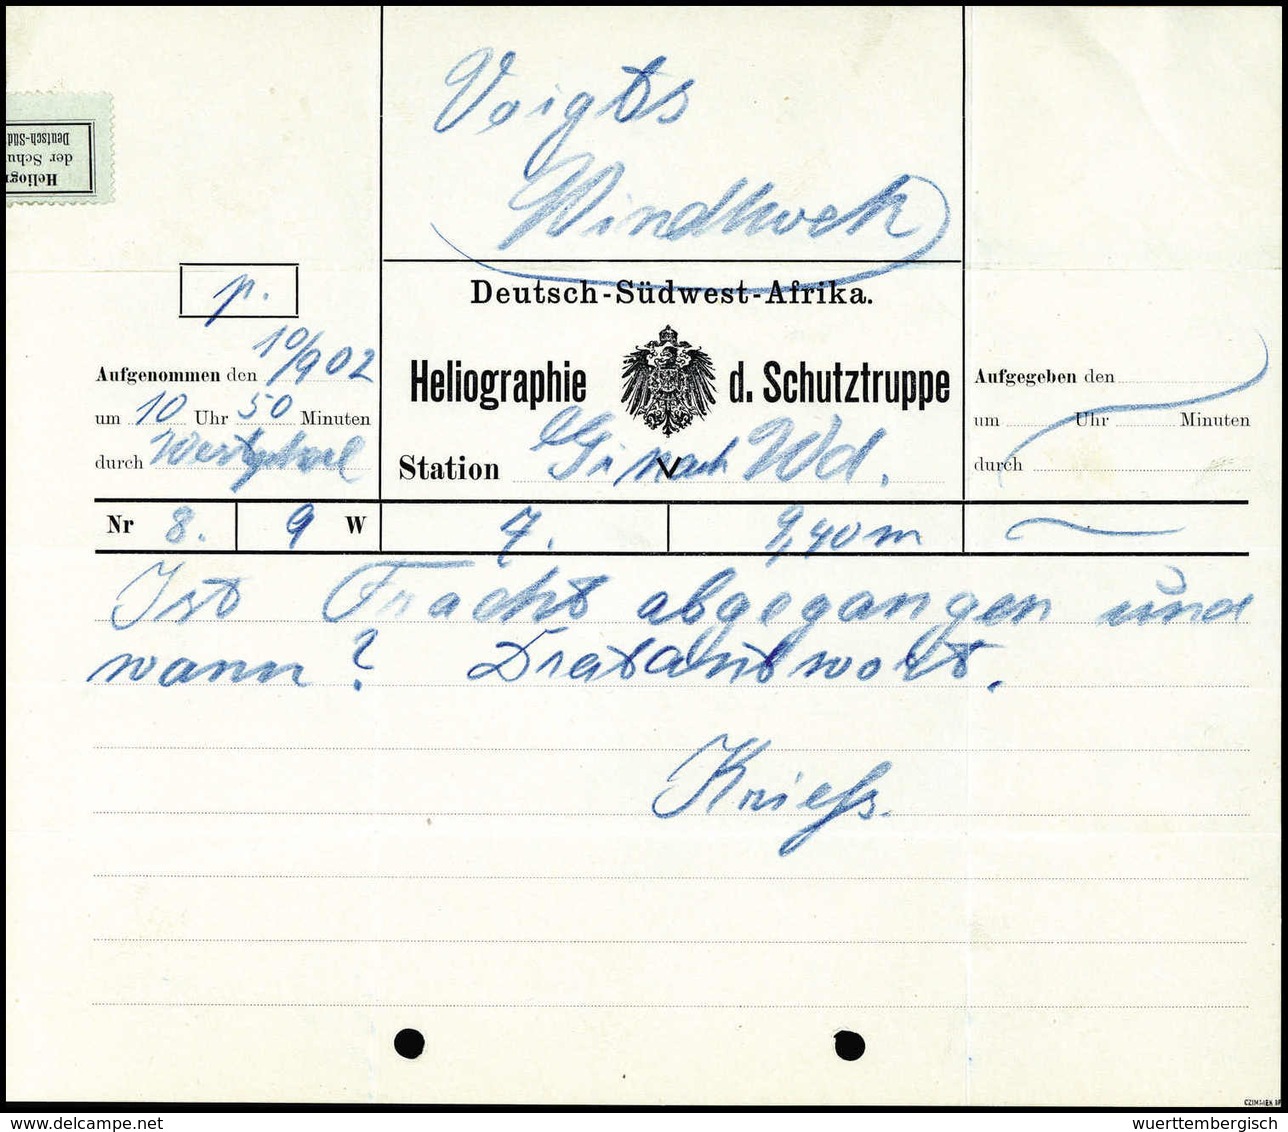 Voigts
Windhoek
Deutsch-Süd
der Schu
Heliogr
p.
Deutsch-Südwest-Afrika.
Heliographie d. Schutztruppe
Aufgenommen den 10/9 02
um 10 Uhr 50 Minuten
durch Westphal
Station Gi nach Wd.
Aufgegeben den
um Uhr Minuten
durch
Nr 8. 9 W 7. 9,40 m
Ist Fracht abgegangen und
wann? Dratantwort.
Kriess.
wuerttembergisch